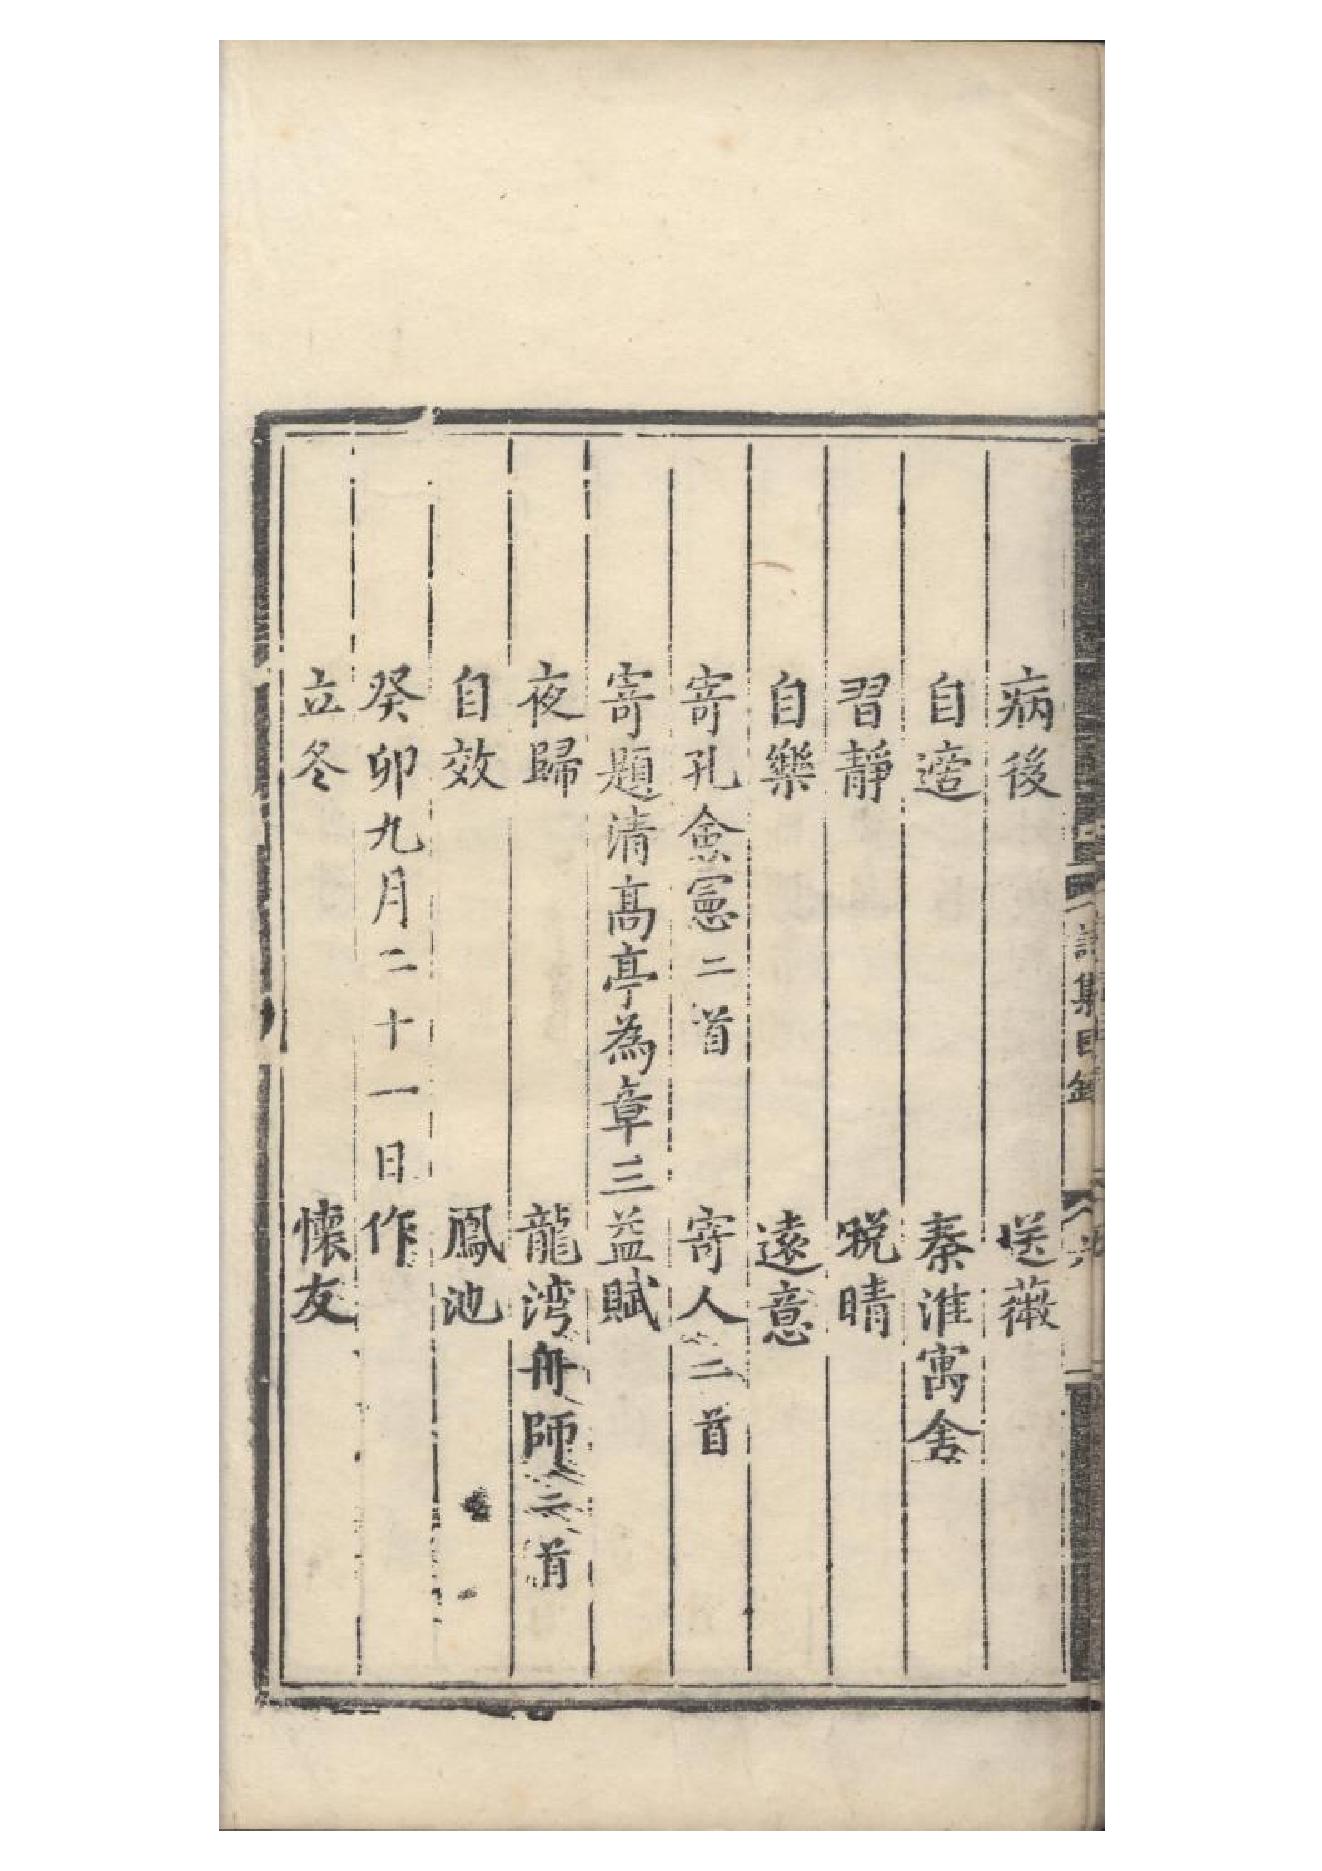 詩集目錄
病後 送薇
自適 秦淮寓舍
習靜 晚晴
自樂 遠意
寄孔僉憲二首 寄人二首
寄題清高亭為章三益賦
夜歸 龍湾舟師二首
自效 鳳池
癸卯九月二十一日作
立冬 懷友